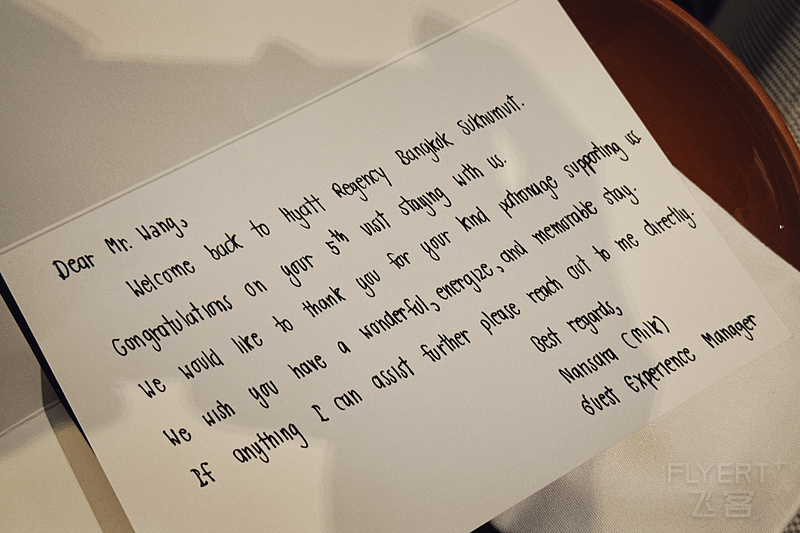 Dear Mr. Wang,
Welcome back to Hyatt Regency Bangkok Sukhumvit.
Congratulations on your 5th visit staying with us.
We would like to thank you for your kind patronage supporting us
We wish you have a wonderful, energize, and memorable stay.
If anything I can assist further please reach out to me directly.
Best regards,
Nansara (Milk)
Guest Experience Manager
FLYERT+
飞客